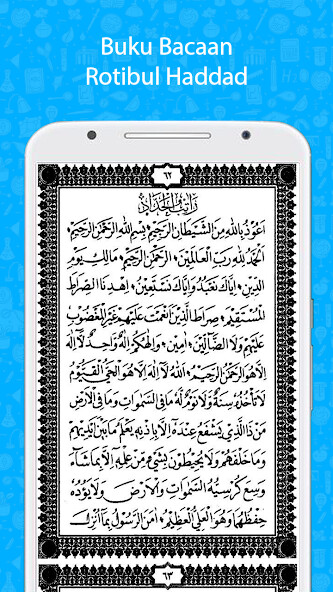 Buku Bacaan
Rotibul Haddad
٦٢
رَاتِبُ الْحَدَّادِ
اَعُوْذُ بِاللهِ مِنَ الشَّيْطَانِ الرَّجِيْمِ، بِسْمِ اللهِ الرَّحْمٰنِ الرَّحِيْمِ،
اَلْحَمْدُ لِلّٰهِ رَبِّ الْعَالَمِيْنَ، الرَّحْمٰنِ الرَّحِيْمِ، مَالِكِ يَوْمِ
الدِّيْنِ، اِيَّاكَ نَعْبُدُ وَاِيَّاكَ نَسْتَعِيْنُ، اِهْدِنَا الصِّرَاطَ
الْمُسْتَقِيْمَ، صِرَاطَ الَّذِيْنَ اَنْعَمْتَ عَلَيْهِمْ غَيْرِ الْمَغْضُوْبِ
عَلَيْهِمْ وَلَا الضَّالِّيْنَ، اٰمِيْنَ، وَاِلٰهُكُمْ اِلٰهٌ وَاحِدٌ لَا اِلٰهَ
اِلَّا هُوَ الرَّحْمٰنُ الرَّحِيْمُ، اَللهُ لَا اِلٰهَ اِلَّا هُوَ الْحَيُّ الْقَيُّوْمُ
لَا تَأْخُذُهُ سِنَةٌ وَلَا نَوْمٌ لَهُ مَا فِى السَّمٰوَاتِ وَمَا فِى الْاَرْضِ
مَنْ ذَا الَّذِيْ يَشْفَعُ عِنْدَهُ اِلَّا بِاِذْنِهِ يَعْلَمُ مَا بَيْنَ اَيْدِيْهِمْ
وَمَا خَلْفَهُمْ وَلَا يُحِيْطُوْنَ بِشَيْءٍ مِنْ عِلْمِهِ اِلَّا بِمَا شَاءَ
وَسِعَ كُرْسِيُّهُ السَّمٰوَاتِ وَالْاَرْضَ وَلَا يَؤُدُهُ
حِفْظُهُمَا وَهُوَ الْعَلِيُّ الْعَظِيْمُ، اٰمَنَ الرَّسُوْلُ بِمَا اُنْزِلَ
٦٣